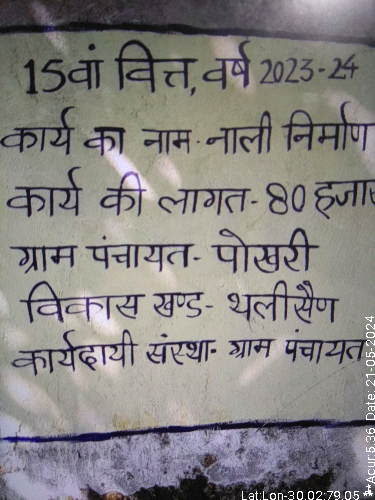 15वां वित्त, वर्ष 2023-24
कार्य का नाम- नाली निर्माण
कार्य की लागत- 80 हजार
ग्राम पंचायत- पोखरी
विकास खण्ड- थलीसैण
कार्यदायी संस्था- ग्राम पंचायत
Lat:Lon-30.02:79.05
**Acur:5.36 Date: 21-05-2024